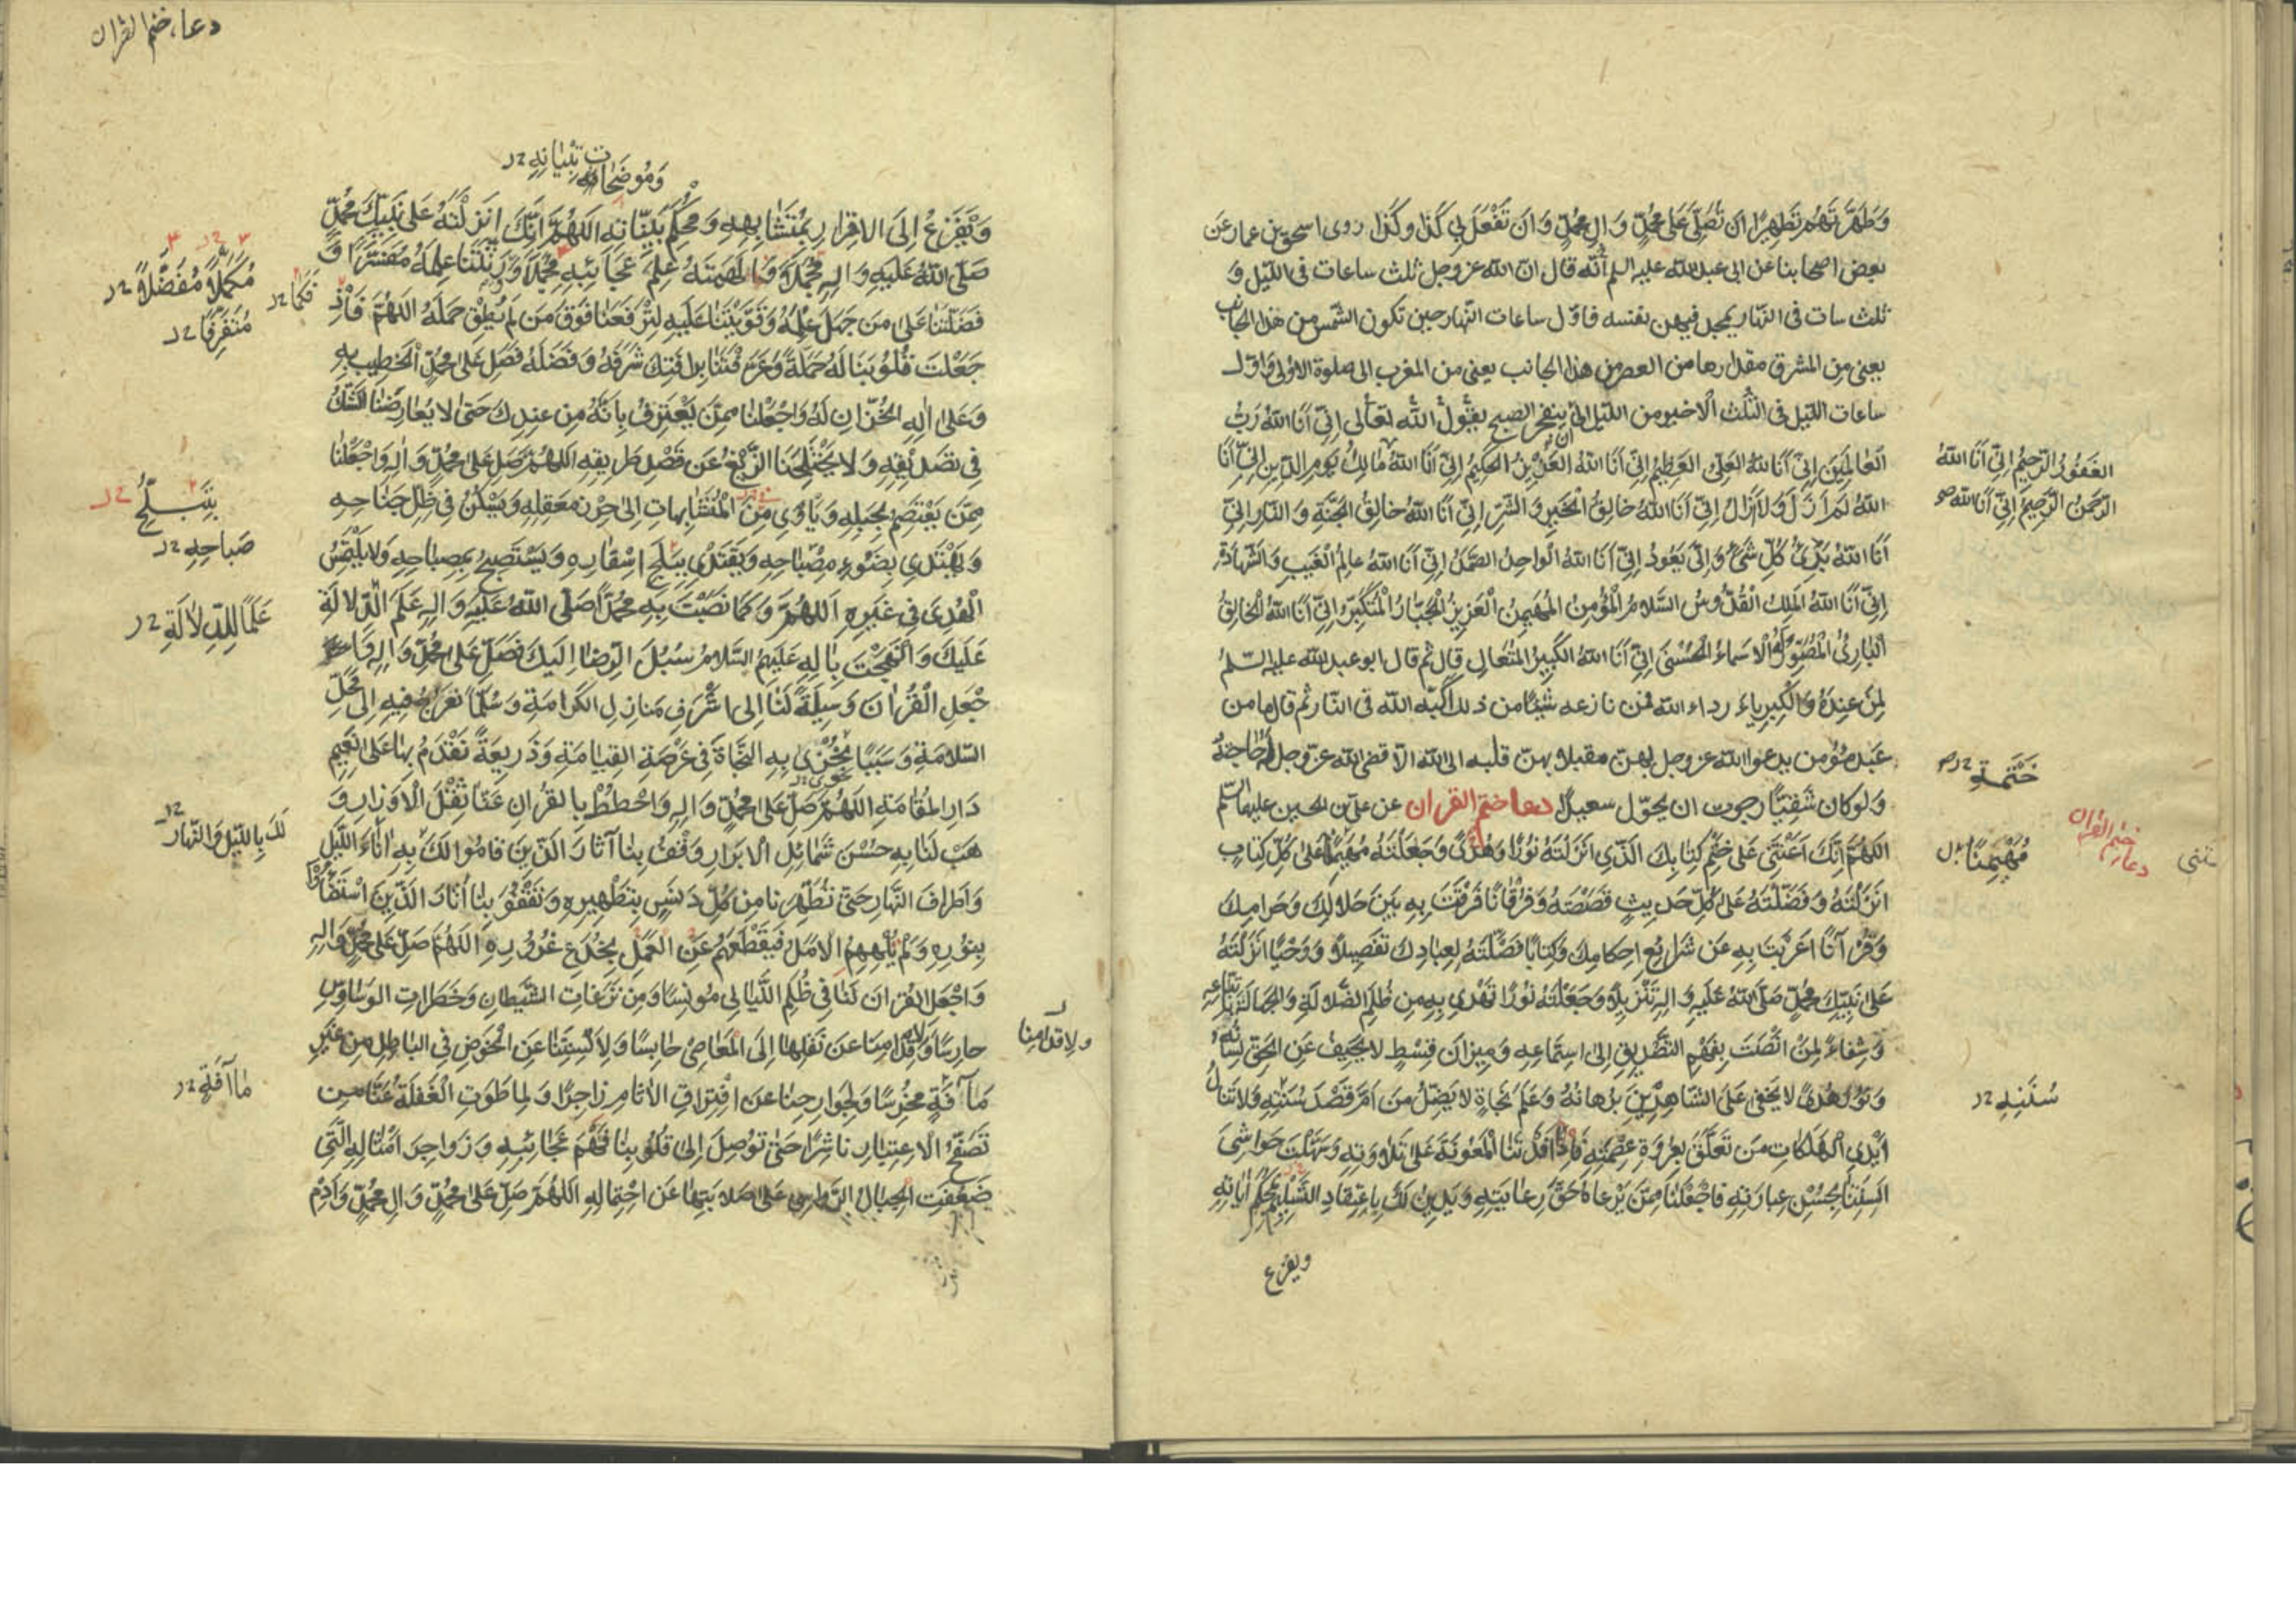 وَطَهَّرْتَهُمْ تَطْهِيرًا اَنْ تُصَلِّىَ عَلَى مُحَمَّدٍ وَالِ مُحَمَّدٍ وَاَنْ تَفْعَلَ بِي كَذَا وكَذَا روى اسحق بن عمار عَن
بعض اصحابنا عن ابى عبد الله عليه السلم اَنَّه قال انّ الله عز وجل ثلث ساعات فى الليل وَ
ثلث سات فى النّهار يمجد فيهن نفسه فاوّل ساعات النّهار حين تكون الشّمس من هذا الجانب
يعنى من المشرق مقدارها من العصر من هذا الجانب يعنى من المغرب الى صلوة الاولى وَاوّل
ساعات الليل فى الثّلث الاخير من الليل الى ان ينفجر الصبح يقول اللّه تعالى اِنّى اَنَا اللهُ رَبُّ
العَالَمِينَ اِنِّى اَنَا اللهُ العَلِىُّ العَظِيمُ اِنِّى اَنَا اللهُ العَزِيزُ الحَكِيمُ اِنِّى اَنَا اللهُ مَالِكُ يَومِ الدّينِ اِنِّى اَنَا
اللهُ لَمْ اَزَلْ وَلا اَزَالُ اِنِّى اَنَا اللهُ خَالِقُ الْخَيرِ وَالشَّرِّ اِنِّى اَنَا اللهُ خَالِقُ الْجَنَّةِ وَالنّارِ اِنِّى
اَنَا اللهُ بَدْئُ كُلِّ شَىْءٍ وَاِلَىَّ يَعُودُ اِنِّى اَنَا اللهُ الواحِدُ الصَّمَدُ اِنِّى اَنَا اللهُ عالِمُ الْغَيبِ وَالشَّهَادَةِ
اِنِّى اَنَا اللهُ المَلِكُ الْقُدُّوسُ السَّلامُ المُؤْمِنُ المُهَيمِنُ الْعَزِيزُ الْجَبّارُ الْمُتَكَبِّرُ اِنِّى اَنَا اللهُ الْخَالِقُ
الْبَارِئُ الْمُصَوِّرُ لِىَ الْاَسْمَاءُ الْحُسْنَى اِنِّى اَنَا اللهُ الكَبِيرُ المُتَعَالِ قال ثم قال ابو عبد الله عليه السّلم
لِمَنْ عِنْدَهُ وَالْكِبرِياءُ رداء الله فمن نازعه شيئًا من ذلك اكبّه الله فى النّار ثم قال ما من
عَبْد مؤمن يدعوا الله عز وجل بهنّ مقبلا بهنّ قلبه الى الله الّا قضى الله عزّ وجل لَهُ حَاجتَهُ
وَلو كان شَقِيًّا رجوت ان يحوّل سعيدًا دعا ختم القران عن علىّ بن الحسين عليهما السّلم
اللهُمَّ اِنَّكَ اَعَنْتَنِى عَلَى خَتْمِ كِتَابِكَ الَّذِى اَنْزَلْتَهُ نُورًا وَهُدًى وَجَعَلْتَهُ مُهَيمِنًا عَلَى كُلِّ كِتَابٍ
اَنْزَلْتَهُ وَفَضَّلْتَهُ عَلَى كُلِّ حَدِيثٍ قَصَصْتَهُ وَفُرْقَانًا فَرَقْتَ بِهِ بَيْنَ حَلَالِكَ وَحَرَامِكَ
وَقُرْآنًا اَعْرَبْتَ بِهِ عَنْ شَرَايِعِ احكامِكَ وَكِتابًا فَصَّلْتَهُ لِعِبَادِكَ تَفْصِيلًا وَوَحْيًا اَنْزَلْتَهُ
عَلَى نَبِيِّكَ مُحَمَّدٍ صَلَّى اللهُ عَلَيهِ وَالِهِ تَنْزِيلًا وَجَعَلْتَهُ نُورًا نَهْتَدِى بِهِ مِن ظُلَمِ الضَّلالَةِ وَالجَهَالَةِ بِاتِّبَاعِهِ
وَشِفاءً لِمَنْ انْصَتَ بِفَهْمِ التَّصْدِيقِ اِلى اسْتِمَاعِهِ وَمِيزانَ قِسْطٍ لا يَحِيفُ عَنِ الحَقِّ لِسَانُهُ
وَنُورَ هُدًى لا يَخْفى عَلَى الشّاهِدِينَ بُرْهَانُهُ وَعَلَمَ نَجَاةٍ لا يَضِلُّ مَنْ اَمَّ قَصْدَ سُنَّتِهِ وَلا تَنَالُ
اَيْدِى الْهَلَكَاتِ مَنْ تَعَلَّقَ بِعُرْوَةِ عِصْمَتِهِ فَاِذْ اَفَدْتَنَا الْمَعُونَةَ عَلى تِلاوَتِهِ وَسَهَّلْتَ حَوَاشِىَ
اَلْسِنَتِنَا بِحُسْنِ عِبارَتِهِ فَاجْعَلْنَا مِمَّنْ يَرْعَاهُ حَقَّ رِعايَتِهِ وَيَدِينُ لَكَ بِاعْتِقادِ التَّسْلِيمِ لِمُحْكَمِ ايَاتِهِ
ويفزع
الغَفُورُ الرَّحِيمُ اِنِّى اَنَا اللهُ
الرَّحمنُ الرَّحِيمُ اِنِّى اَنَا الله
خَتْمَة
دعا ختم القران
مُهَيْمِنًا
سُنَّتِهِ
دعاء ختم القران
وَمُوضَحَاتِ تِبْيَانِهِ
وَيَفْزَعُ اِلَى الاقرارِ بِمُتَشَابِهِهِ وَمُحْكَمِ بَيِّنَاتِهِ اللهُمَّ اِنَّكَ اَنْزَلْتَهُ عَلى نَبِيِّكَ مُحَمَّدٍ
صَلَّى اللهُ عَلَيهِ وَالِهِ مُجْمَلًا وَاَلْهَمْتَهُ عِلْمَ عَجَائِبِهِ مُجْمَلًا وَوَرَّثْتَنَا عِلْمَهُ مُفَسَّرًا وَ
فَضَّلْتَنَا عَلى مَنْ جَهِلَ عِلْمَهُ وَقَوَّيْتَنَا عَلَيهِ لِتَرْفَعَنَا فَوْقَ مَن لَمْ يُطِقْ حَمْلَهُ اللهُمَّ فَاِذْ
جَعَلْتَ قُلُوبَنَا لَهُ حَمَلَةً وَعَرَّفْتَنَا بِرَافَتِكَ شَرَفَهُ وَفَضْلَهُ فَصَلِّ عَلى مُحَمَّدٍ الْخَطِيبِ بِهِ
وَعَلى الِهِ الخُزّانِ لَهُ وَاجْعَلْنَا مِمَّن يَعْتَرِفُ بِاَنَّهُ مِن عِنْدِكَ حَتّى لا يُعَارِضَنَا الشَّكُّ
فِى تصْدِيقِهِ وَلا يَخْتَلِجَنَا الزَّيْغُ عَن قَصْدِ طَرِيقِهِ اللهُمَّ صَلِّ عَلى مُحَمَّدٍ وَالِهِ وَاجْعَلْنَا
مِمَّن يَعْتَصِمُ بِحَبْلِهِ وَيَأْوِى مِنَ الْمُتَشَابِهَاتِ اِلى حِرْزِ مَعْقِلِهِ وَيَسْكُنُ فِى ظِلِّ جَنَاحِهِ
وَيَهْتَدِى بِضَوءِ مِصْبَاحِهِ وَيَقْتَدِى بِتَبَلُّجِ اسْفَارِهِ وَيَسْتَصبِحُ بِمِصبَاحِهِ وَلا يَلْتَمِسُ
الْهُدى فِى غَيرِهِ اللهُمَّ وَكَمَا نَصَبْتَ بِهِ مُحَمَّدًا صَلَّى اللهُ عَلَيهِ وَالِهِ عَلَمَ الدِّلالَةِ
عَلَيكَ وَانْهَجْتَ بِالِهِ عَلَيهِمُ السَّلامُ سُبُلَ الرِّضَا اِلَيكَ فَصَلِّ عَلى مُحَمَّدٍ وَالِهِ وَا
جْعَلِ الْقُرْانَ وَسِيلَةً لَنَا اِلى اَشْرَفِ مَنَازِلِ الكَرامَةِ وَسُلَّمًا نَعْرُجُ فِيهِ اِلى مَحَلِّ
السَّلامَةِ وَسَبَبًا نُجْزى بِهِ النَّجَاةَ فِى عَرْصَةِ القِيَامَةِ وَذَرِيعَةً نَقْدَمُ بِهَا عَلى نَعِيمِ
دَارِ المُقَامَةِ اللهُمَّ صَلِّ عَلى مُحَمَّدٍ وَالِهِ وَاحْطُطْ بِالقُرْانِ عَنَّا ثِقْلَ الْاَوْزَارِ وَ
هَبْ لَنَا بِهِ حُسْنَ شَمَائِلِ الابْرَارِ وَقْفُ بِنَا آثَارَ الَّذِينَ قامُوا لَكَ بِهِ انَاءَ اللَّيلِ
وَاَطْرافَ النَّهَارِ حَتّى تُطَهِّرَنَا مِن كُلِّ دَنَسٍ بِتَطْهِيرِهِ وَتَقْفُوَ بِنَا اثَارَ الَّذِينَ اسْتَضَاؤُا
بِنُورِهِ وَلَمْ يُلْهِهِمُ الامَلُ فَيَقْطَعَهُمْ عَنِ العَمَلِ بِخُدَعِ غُرُورِهِ اللهُمَّ صَلِّ عَلى مُحَمَّدٍ وَالِهِ
وَاجْعَلِ القُرْانَ لَنَا فِى ظُلَمِ اللَّيَالِى مُونِسًا وَمِن نَزَغَاتِ الشَّيْطانِ وَخَطَرَاتِ الوَسَاوِسِ
حارِسًا وَلِاَقْدَامِنَا عَن نَقْلِهَا اِلَى الْمَعَاصِى حَابِسًا وَلِاَلْسِنَتِنَا عَنِ الْخَوْضِ فِى البَاطِلِ مِن غَيْرِ
مَا آفَةٍ مُخْرِسًا وَلِجَوَارِحِنَا عَنِ اقْتِرافِ الاثَامِ زاجِرًا وَلِمَا طَوَتِ الْغَفْلَةُ عَنَّا مِن
تَصَفُّحِ الاعْتِبَارِ نَاشِرًا حَتّى تُوصِلَ اِلى قُلُوبِنَا فَهْمَ عَجَائِبِهِ وَزَواجِرَ اَمْثَالِهِ الَّتِى
ضَعُفَتِ الجِبَالُ الرَّواسِى عَلى صَلابَتِهَا عَن احْتِمَالِهِ اللهُمَّ صَلِّ عَلى مُحَمَّدٍ وَالِ مُحَمَّدٍ وَاَدِمْ
مُكَمَّلًا مُفَضَّلًا
فَكَمَا
مُتَفَرِّقًا
بِتَبَلُّجِ
صَباحِهِ
عَلَمًا لِلدِّلالَةِ
لَكَ بِاللَّيلِ وَالنَّهَارِ
ولاقدامنا
مَا آفَةٍ